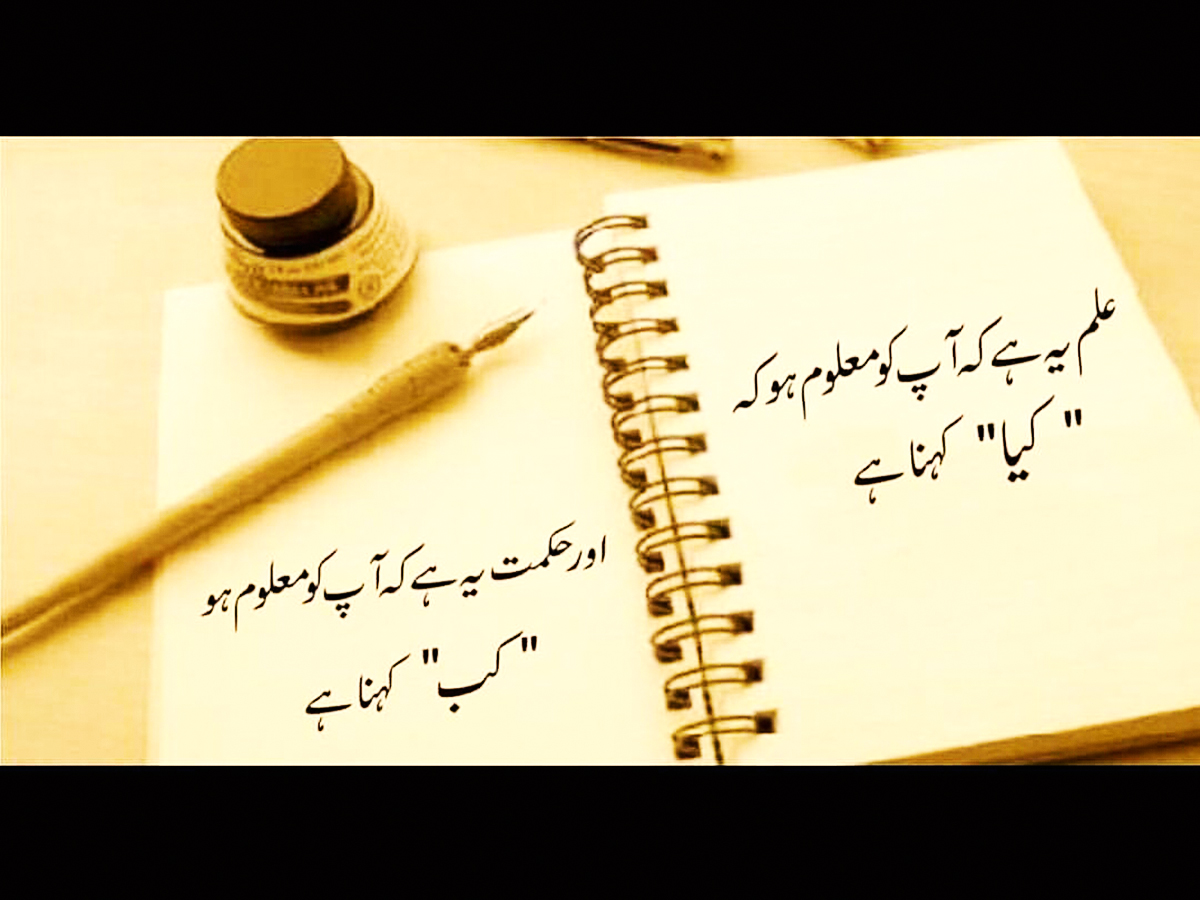 علم یہ ہے کہ آپ کو معلوم ہو کہ
" کیا" کہنا ہے
اور حکمت یہ ہے کہ آپ کو معلوم ہو
" کب" کہنا ہے